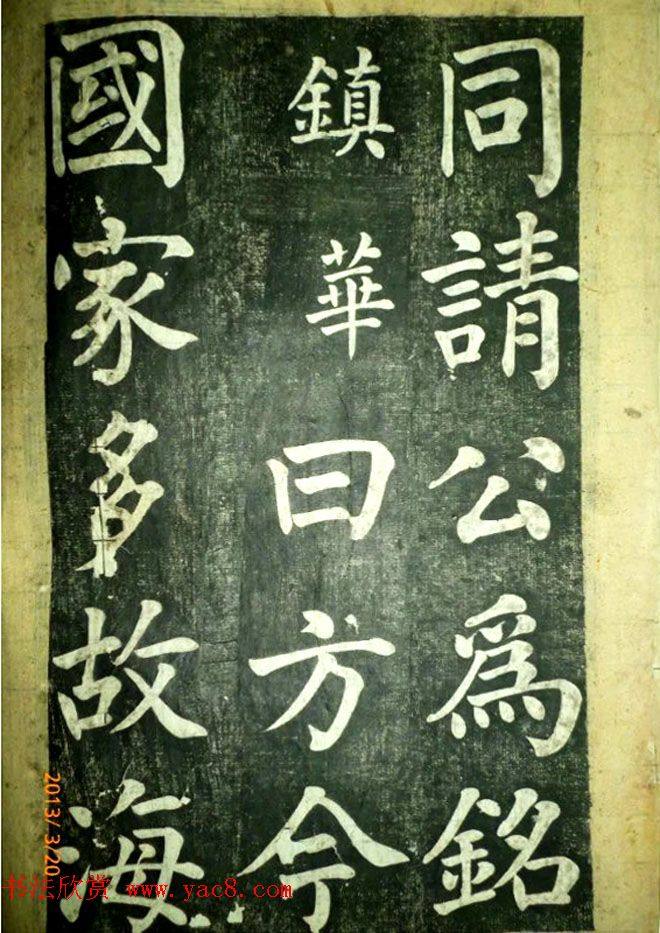 同請公爲銘
鎮華曰方今
國家多故海
2013/3/20
书法欣赏 www.yac8.com